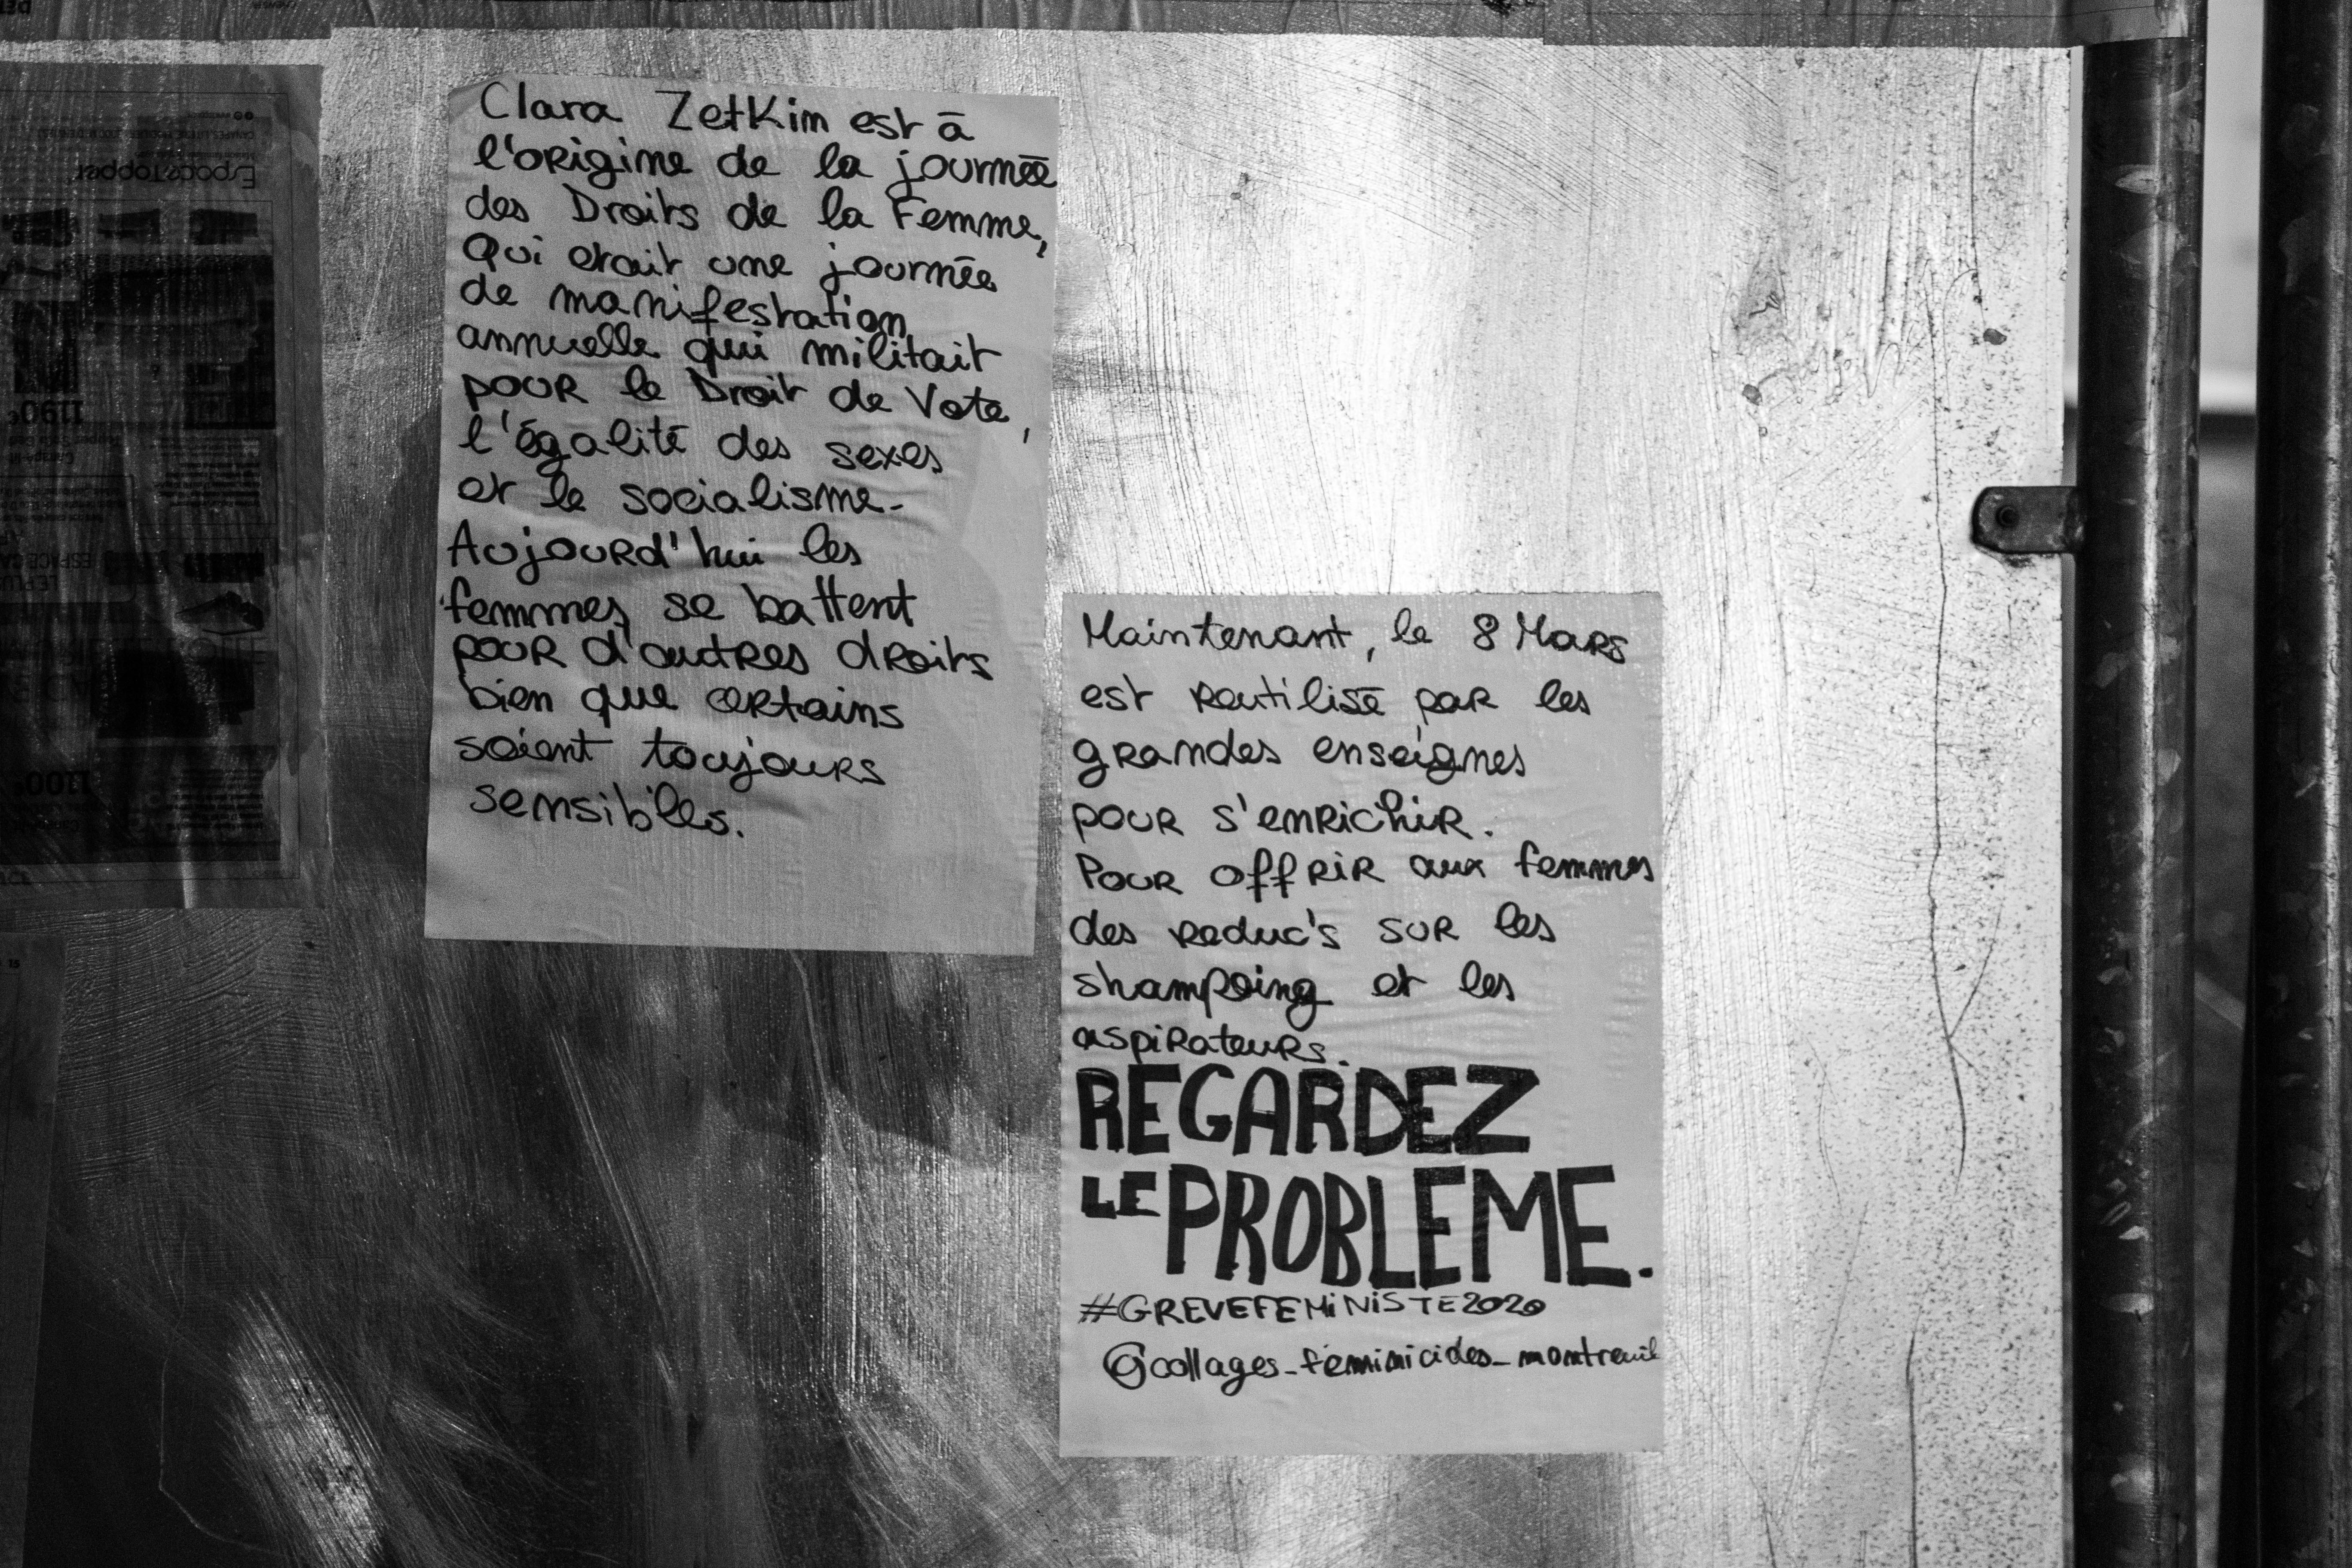 Clara Zetkin est à
l'origine de la journée
des Droits de la Femme,
Qui etait une journée
de manifestation
annuelle qui militait
pour le Droit de Vote,
l'égalité des sexes
et le socialisme.
Aujourd'hui les
femmes se battent
pour d'autres droits
bien que certains
soient toujours
sensibles.
Maintenant, le 8 Mars
est reutilisé par les
grandes enseignes
pour s'enrichir.
Pour offrir aux femmes
des reduc's sur les
shampoing et les
aspirateurs.
REGARDEZ
LE PROBLEME.
#GREVEFEMINISTE2020
@collages_féminicides_montreuil
EspaceTopper
1190€
1100€